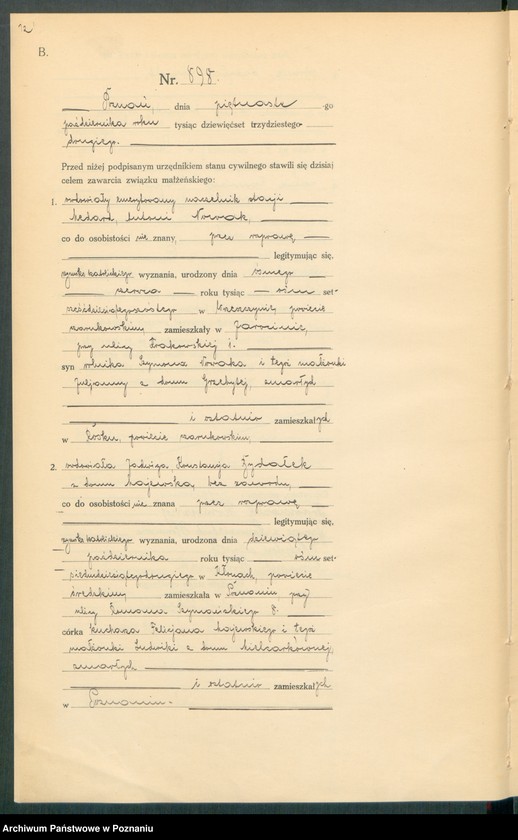 B.
Nr. 898.
Poznań, dnia piętnaste-go
października roku tysiąc dziewięćset trzydziestego-
drugiego.
Przed niżej podpisanym urzędnikiem stanu cywilnego stawili się dzisiaj
celem zawarcia związku małżeńskiego:
1. owdowiały emerytowany naczelnik stacji
Medard, Antoni Nowak,
co do osobistości nie znany, przez rozprawę
legitymując się,
rzymsko katolickiego wyznania, urodzony dnia ósmego
czerwca roku tysiąc ośm set-
sześćdziesiątego w powiecie
czarnkowskim zamieszkały w Jarocinie,
przy ulicy Krakowskiej
syn rolnika Szymona Nowaka i tegoż małżonki
Juljanny z domu zmarłych
i ostatnio zamieszkałych
w powiecie czarnkowskim,
2. owdowiała Jadwiga, Konstancja
z domu Majewska, bez zawodu,
co do osobistości nie znana przez rozprawę
legitymując się,
rzymsko katolickiego wyznania, urodzona dnia dziewiątego
października roku tysiąc ośm set-
pięćdziesiątego drugiego w powiecie
średzkim zamieszkała w Poznaniu przy
ulicy Romana Szymańskiego 8.
córka kucharza Felicjana Majewskiego i tegoż
małżonki Ludwiki z domu
zmarłych
i ostatnio zamieszkałych
w Poznaniu.
Archiwum Państwowe w Poznaniu